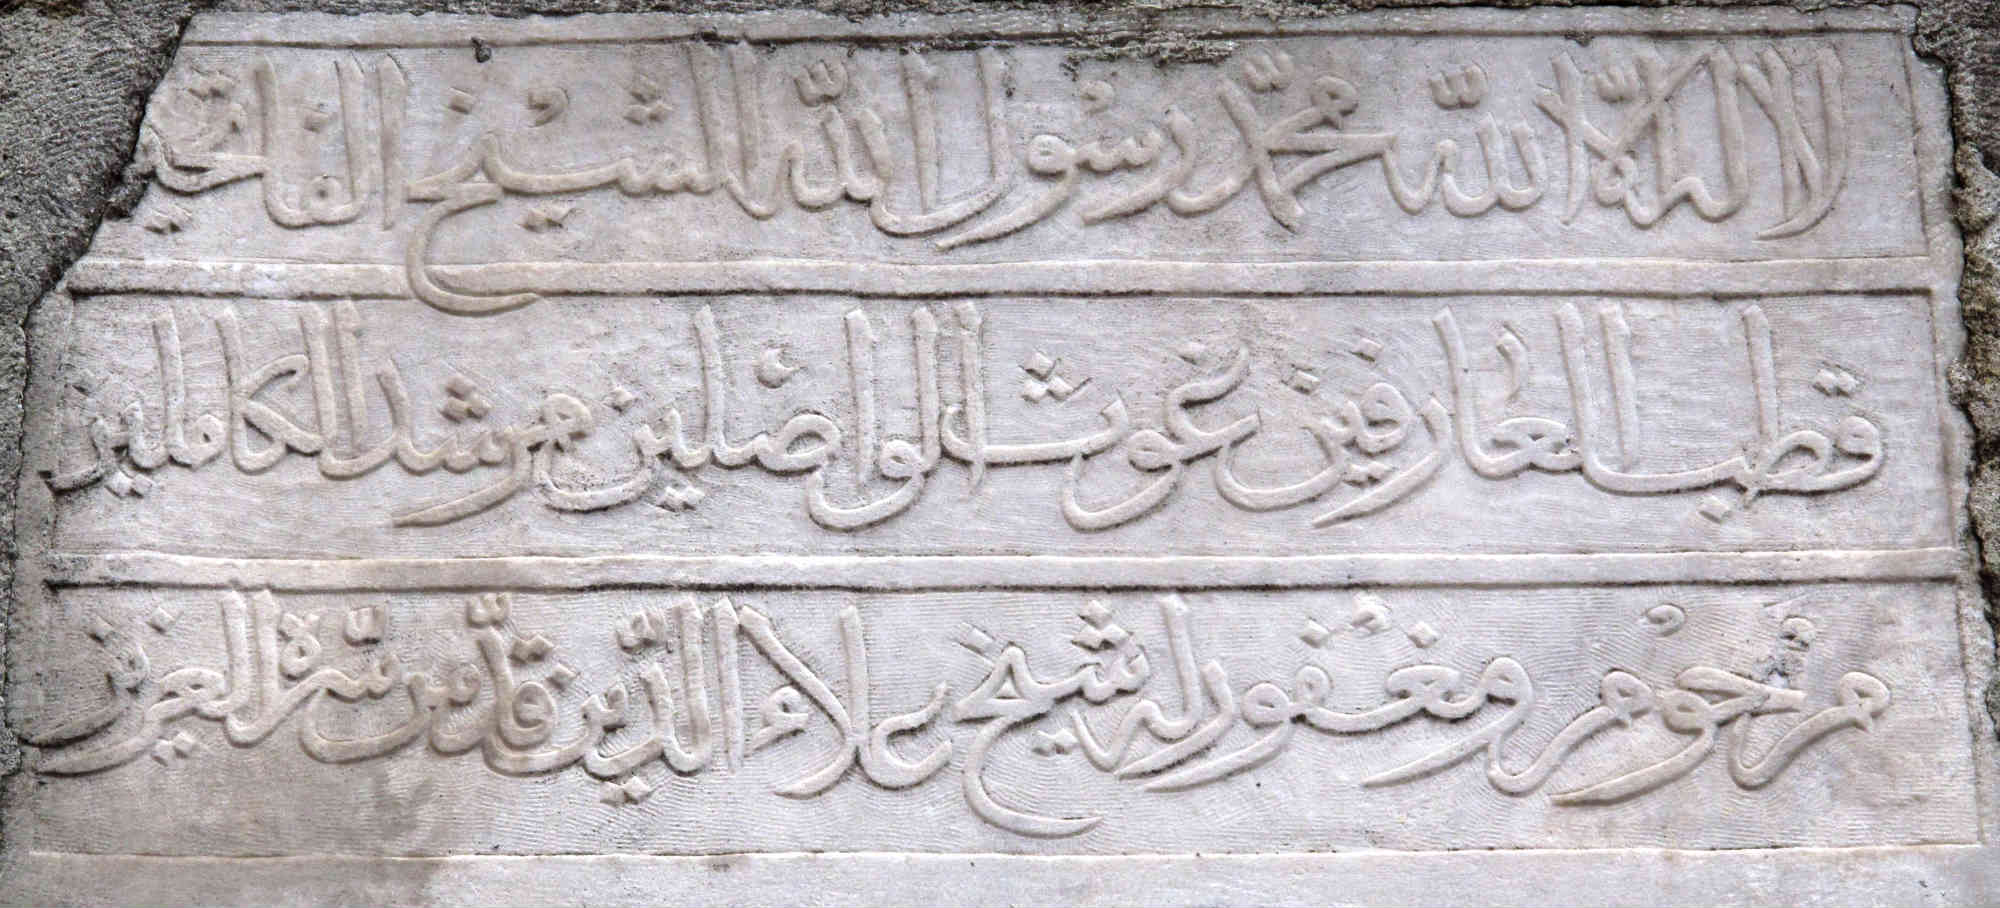 لا اله الا الله محمد رسول الله الشيخ الفاتحه
قطب العارفين غوث الواصلين مرشد الكاملين
مرحوم ومغفور له شيخ علاء الدين قدس سره العزيز